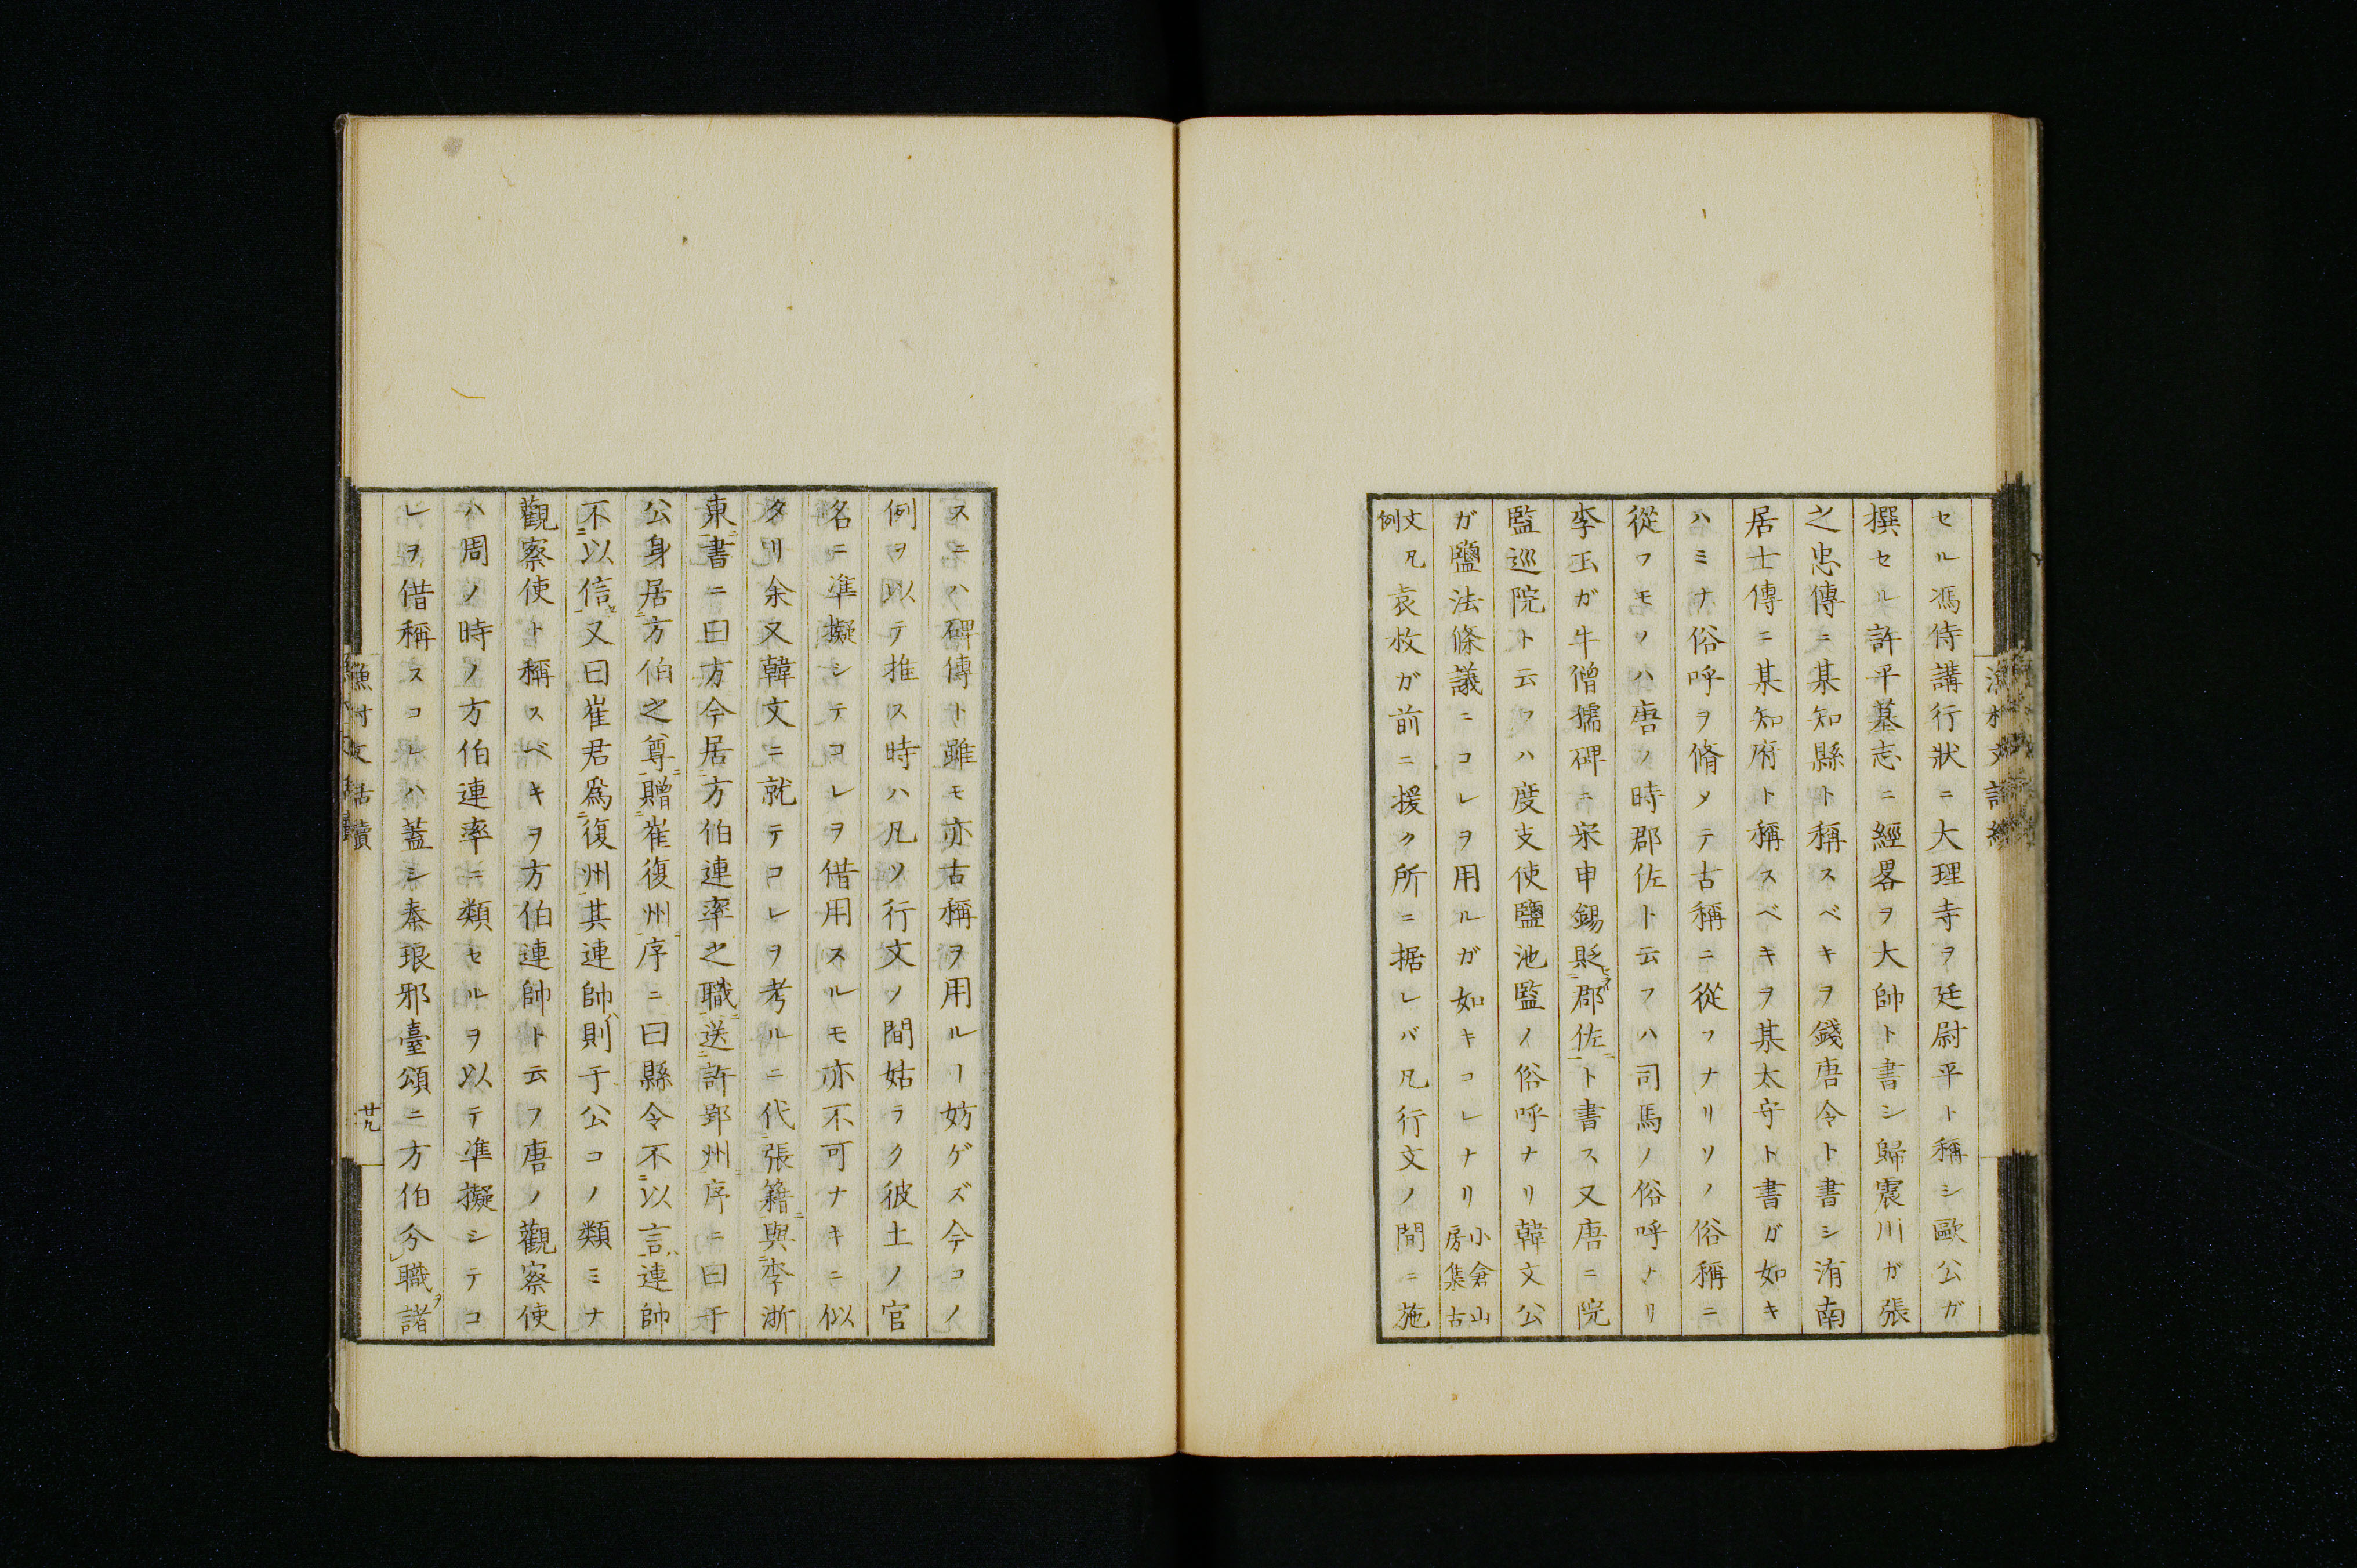 セル馮侍講行狀ニ大理寺ヲ廷尉平ト稱シ歐公ガ
撰セル許平墓志ニ經畧ヲ大帥ト書シ歸震川ガ張
之忠傳ニ某知縣ト稱スベキヲ錢唐令ト書シ洧南
居士傳ニ某知府ト稱スベキヲ某太守ト書ガ如キ
ハミナ俗呼ヲ脩メテ古稱ニ從フナリソノ俗稱ニ
從フモノハ唐ノ時郡佐ト云フハ司馬ノ俗呼ナリ
李玉ガ牛僧孺碑ニ宋申錫貶郡佐ト書ス又唐ニ院
監巡院ト云フハ度支使鹽池監ノ俗呼ナリ韓文公
ガ鹽法條議ニコレヲ用ルガ如キコレナリ小倉山房集古
文凡例袁枚ガ前ニ援ク所ニ据レバ凡行文ノ間ニ施
スニハ碑傳ト雖モ亦古稱ヲ用ルー妨ゲズ今コノ
例ヲ以テ推ス時ハ凡ソ行文ノ間姑ラク彼土ノ官
名ニ準擬シテコレヲ借用スルモ亦不可ナキニ似
タリ余又韓文ニ就テコレヲ考ルニ代張籍與李浙
東書ニ曰方今居方伯連率之職送許郢州序ニ曰于
公身居方伯之尊贈崔復州序ニ曰縣令不以言連帥
不以信又曰崔君爲復州其連帥則于公コノ類ミナ
觀察使ト稱スベキヲ方伯連帥ト云フ唐ノ觀察使
ハ周ノ時ノ方伯連率ニ類セルヲ以テ準擬シテコ
レヲ借稱スコレハ蓋シ秦琅邪臺頌ニ方伯分職諸
漁村文話續
廿九